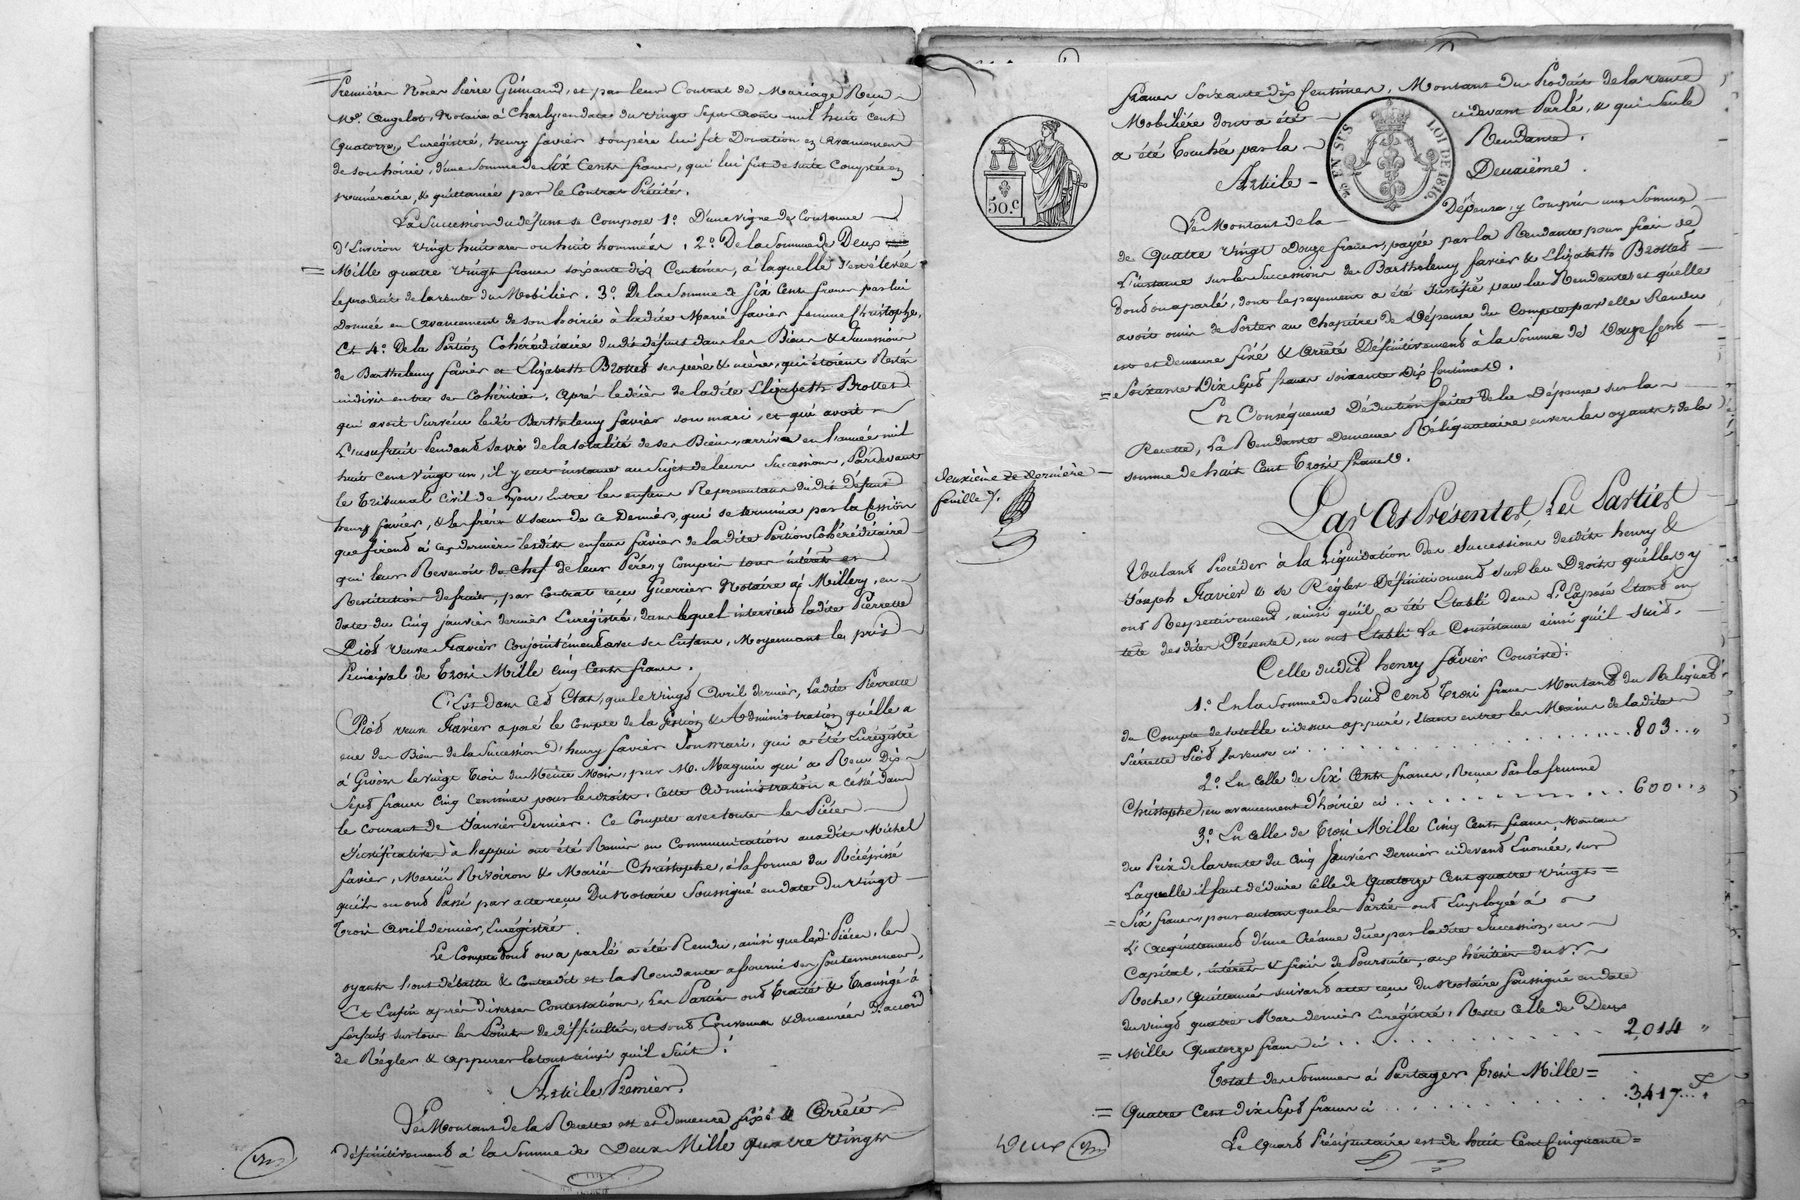 Premières Noces Pierre Guimard, et par leur Contrat de Mariage Reçu
Me. Angelot, Notaire à Charly, en date du vingt Sept Août mil huit cent
quatorze, Enrégistré, henry favier son père lui fit Donation en avancement
de son hoirie, d'une Somme de Six Cents francs, qui lui fut de suite Comptée en
numéraire, & quittancée par le Contrat Précité.
La Succession du défunt se Compose 1.° D'une vigne de Contenue
d'Environ vingt huit ares ou huit hommées, 2.° De la Somme de Deux
Mille quatre vingt francs soixante dix Centimes, à laquelle s'est élevée
le produit de la vente du Mobilier. 3.° De la Somme de Six Cents francs par lui
Donnée en avancement de son hoirie à ladite Marie favier femme Christophe,
Et 4.° De la Portion Cohéréditaire dudit défunt dans les Biens & Succession
de Barthelemy favier et Elizabeth Brottet ses père & mère, qui étoient Restés
indivis entre ses Cohéritiers, après le décès de ladite Elizabeth Brottet
qui avoit Survécu ledit Barthelemy favier son mari, et qui avoit
L'usufruit Pendant Sa vie de la totalité de ses Biens, arrivé en l'année mil
huit cent vingt un, il y eut instance au Sujet de leurs Succession, Pardevant
le Tribunal Civil de Lyon, Entre les enfans Représentans dudit défunt
henry favier, & les frères & sœurs de ce Dernier, qui se termina par la Cession
que firent à ces derniers lesdits enfans favier de ladite Portion Cohéréditaire
qui leur Revenoit du Chef de leur Père, y Compris tous intérêts et
Restitution de frais, par Contrat reçu Guerrier Notaire à Millery, en
date du Cinq janvier dernier Enrégistré, dans lequel intervint ladite Pierrette
Piot veuve Favier Conjointement avec ses Enfans, Moyennant le prix
Principal de Trois Mille Cinq Cents francs.
C'Est dans Cet Etat, que le vingt Avril dernier, Ladite Pierrette
Piot veuve Favier a posé le Compte de la Gestion & Administration qu'elle a
eue des Biens de la Succession d'henry favier Son mari, qui a été Enrégistré
à Givors le vingt Trois du Même Mois, par M. Magnin qui a Reçu Dix
Sept francs Cinq Centimes pour les droits. Cette Administration a Cessé dans
le Courant de Janvier Dernier. Ce Compte avec toutes les Pièces
Justificatives à l'appui ont été Remis en Communication auxdits Michel
favier, Mariée Rivoiron & Mariée Christophe, à la forme du Récépissé
qu'ils en ont Passé par acte reçu Du Notaire Soussigné en date du vingt
Trois Avril dernier, Enrégistré.
Le Compte dont on a parlé a été Rendu, ainsi que lesdites Pièces, les
oyants l'ont débattu & Contredit et la Rendante a fourni ses Soutennemens,
Et Enfin après diverses Contestations, Les Parties ont Traité & Transigé à
forfait sur tous les Points de difficultés, et sont Convenues & demeurées D'accord
de Régler & appurer le tout ainsi qu'il Suit :
Article Premier.
Le Montant de la Recette est et Demeure fixé & Arrêté
définitivement à la Somme de Deux Mille quatre vingts
francs Soixante dix Centimes, Montant du Produit de la vente
Mobilière dont a été cidevant Parlé, & qui Seule
a été Touchée par la Rendante.
Article Deuxième.
50.c
LOI DE 1816.
Le Montant de la Dépense, y Compris une Somme
de Quatre Vingt Douze francs, payée par la Rendante pour frais de
L'instance sur les Successions de Barthelemy favier & Elizabeth Brottet
dont on a parlé, dont le payement a été Justifié par la Rendante et qu'elle
avoit omis de Porter au Chapitre de Dépense du Compte par elle Rendu
est et demeure fixé & Arrêté Définitivement à la Somme de Douze Cent
Soixante Dix Sept francs soixante Dix Centimes.
En Conséquence Déduction faite de la Dépense sur la
Recette, La Rendante Demeure Réliquataire envers les oyants, de la
somme de huit Cent Trois francs.
deuxième et dernière
feuille
Par Ces Présentes, Les Parties
Voulant Procéder à la Liquidation des Successions desdits henry &
Joseph Favier & se Régler Définitivement sur les Droits qu'elles y
ont Respectivement, ainsi qu'il a été Etabli dans L'Exposé Etant en
tête desdites Présentes, en ont Etabli La Consistance ainsi qu'il Suit.
Celle dudit henry favier Consiste :
1.° En la Somme de huit Cent Trois francs Montant du Reliquat
du Compte de tutelle cidessus appuré, Etant entre les Mains de ladite
Pierrette Piot Sa veuve ci . . . . . . . . 803 . . "
2.° En Celle de Six Cents francs, Reçue Par la femme
Christophe, en avancement d'hoirie ci . . . . . . . . 600 . . "
3.° En Celle de Trois Mille Cinq Cents francs Montant
du Prix de la vente du Cinq Janvier Dernier cidevant Enoncée, sur
Laquelle il faut déduire Celle de Quatorze Cent quatre Vingt
Six francs, pour autant que les Parties ont Employée à
L'Acquittement d'une Créance due par ladite Succession, en
Capital, intérêts & frais de Poursuites, aux héritiers du Sr.
Roche, Quittancée suivant acte reçu du Notaire Soussigné en date
du vingt quatre Mars dernier Enrégistré, Reste Celle de Deux
Mille Quatorze francs ci . . . . . . . . 2,014 "
Total des Sommes à Partager Trois Mille
Quatre Cent dix Sept francs ci . . . . . . . . 3,417 . . "
Deux
Le Quart Préciputaire est de huit Cent Cinquante